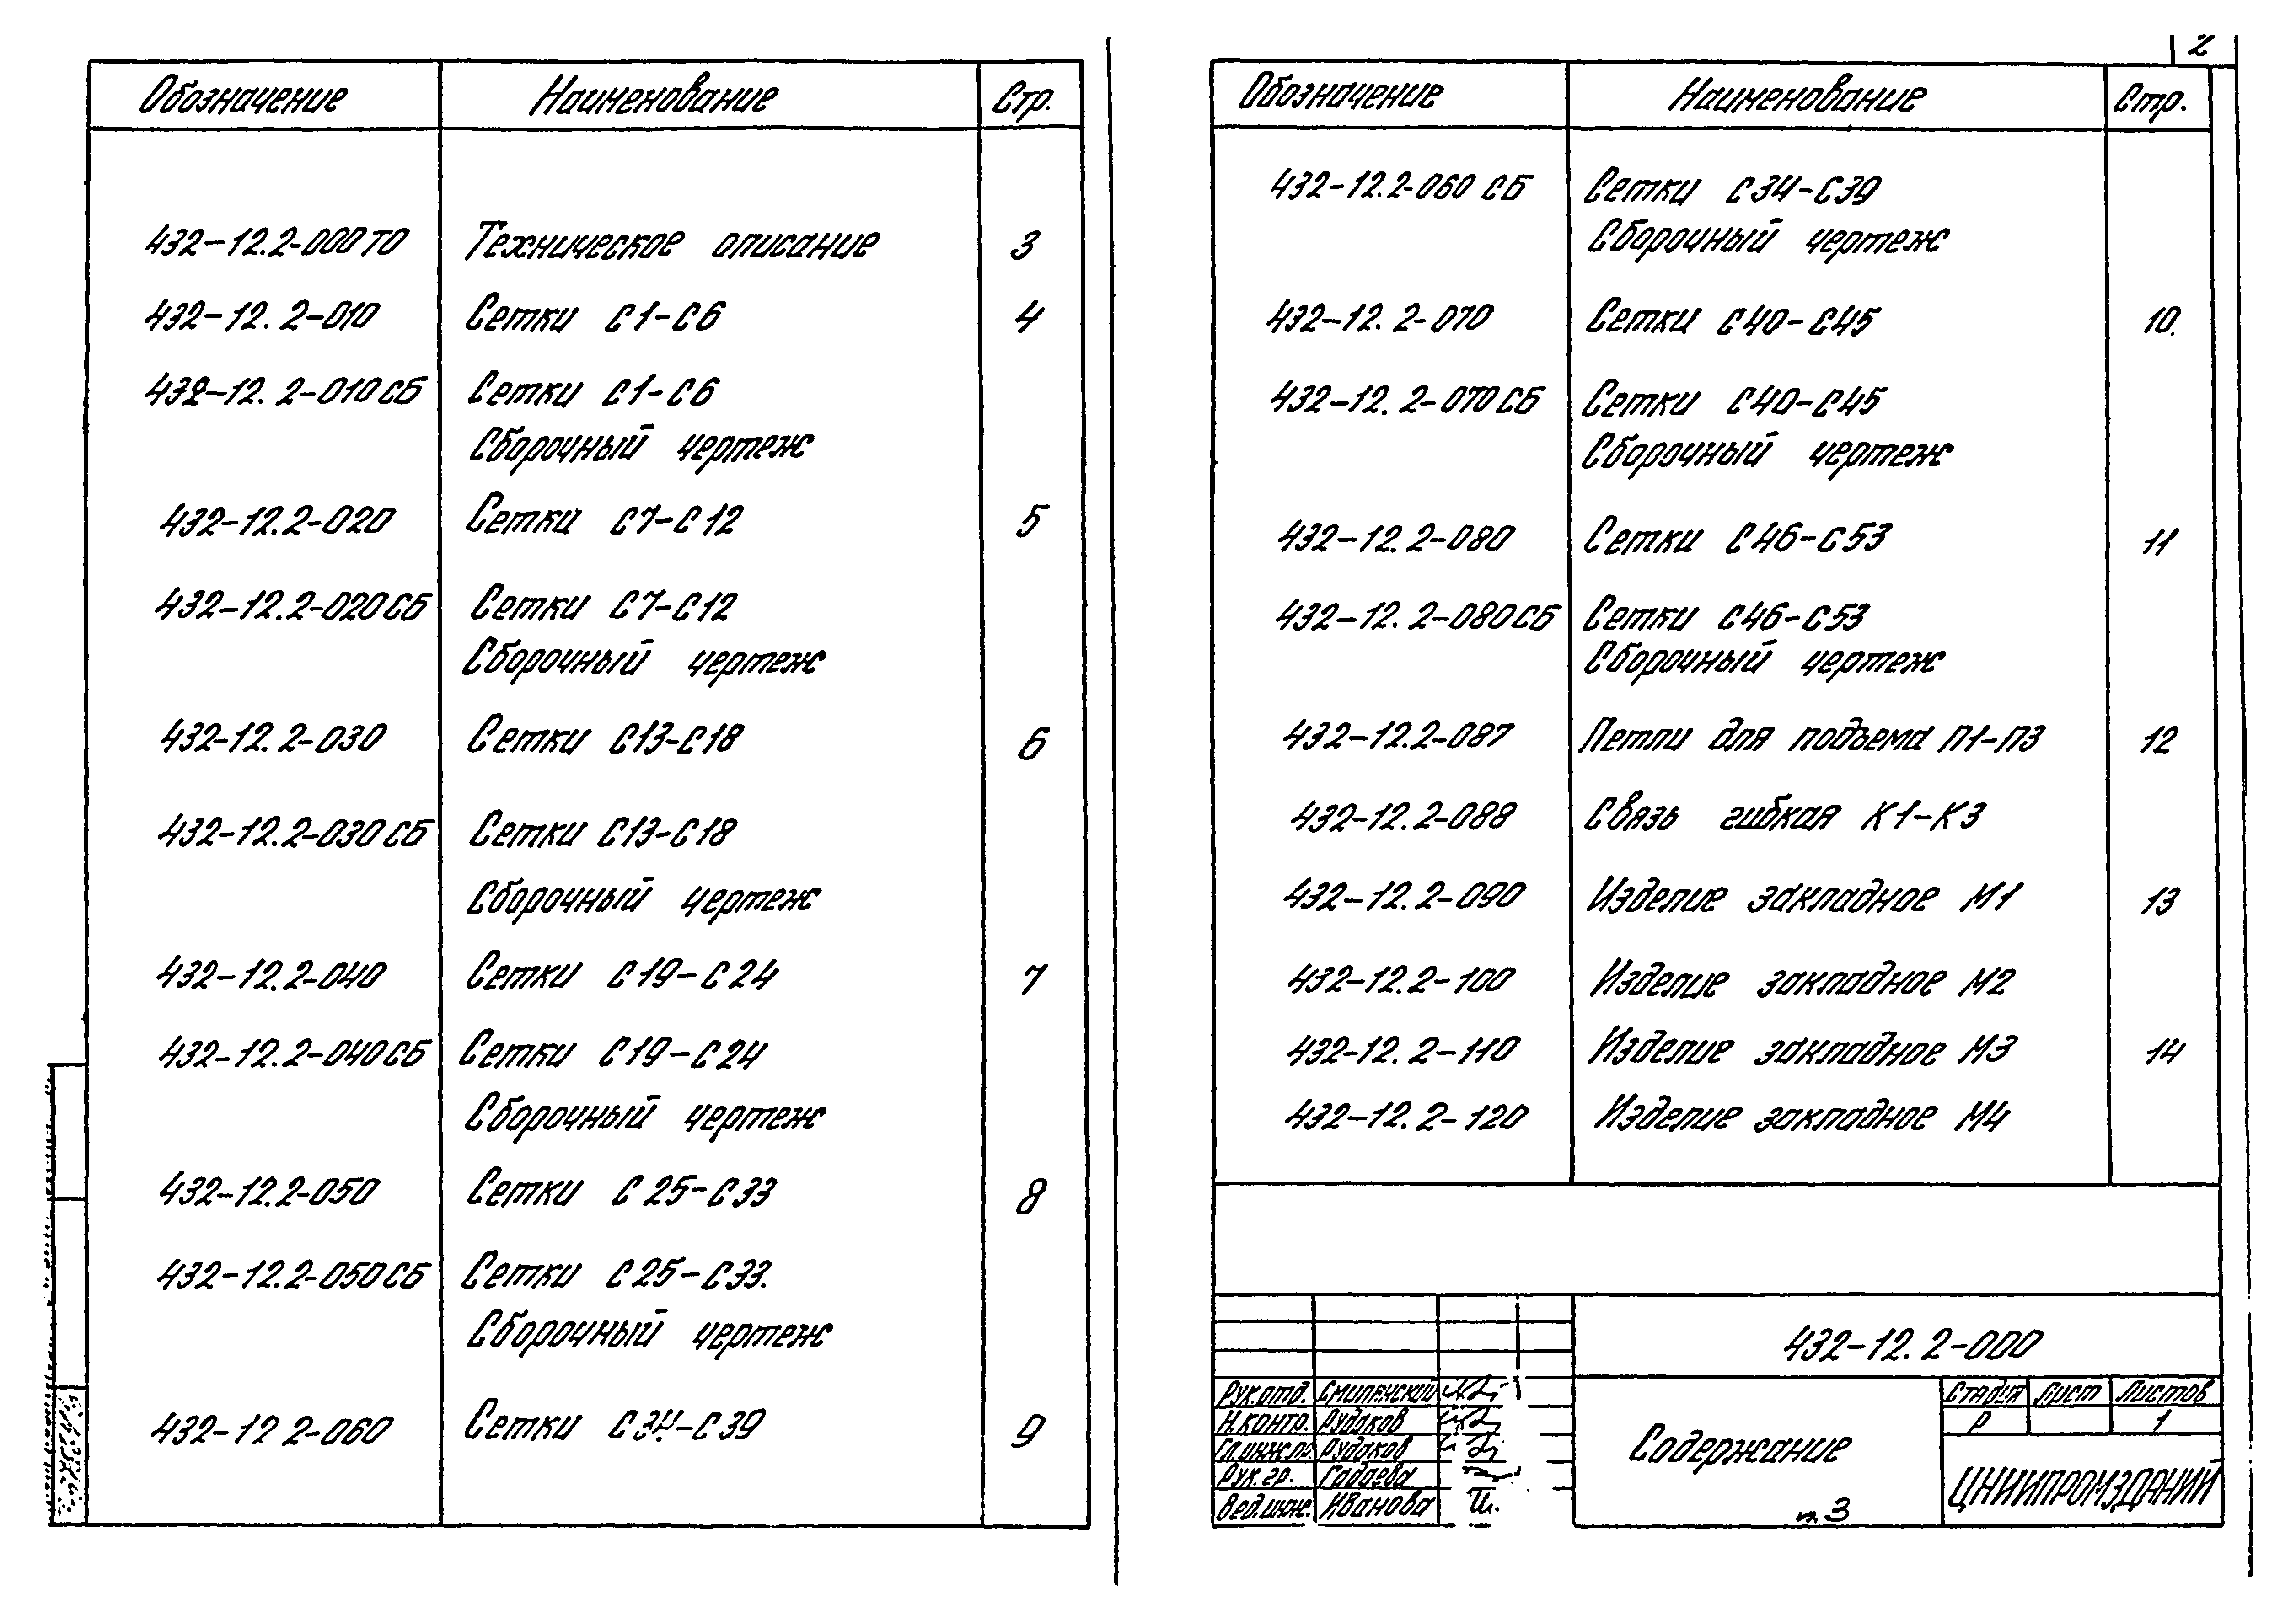 2
Обозначение Наименование Стр.
432-12.2-000ТО Техническое описание 3
432-12.2-010 Сетки С1-С6 4
432-12.2-010СБ Сетки С1-С6
Сборочный чертеж
432-12.2-020 Сетки С7-С12 5
432-12.2-020СБ Сетки С7-С12
Сборочный чертеж
432-12.2-030 Сетки С13-С18 6
432-12.2-030СБ Сетки С13-С18
Сборочный чертеж
432-12.2-040 Сетки С19-С24 7
432-12.2-040СБ Сетки С19-С24
Сборочный чертеж
432-12.2-050 Сетки С25-С33 8
432-12.2-050СБ Сетки С25-С33.
Сборочный чертеж
432-12 2-060 Сетки С34-С39 9
Обозначение Наименование Стр.
432-12.2-060 СБ Сетки С34-С39
Сборочный чертеж
432-12.2-070 Сетки С40-С45 10.
432-12.2-070СБ Сетки С40-С45
Сборочный чертеж
432-12.2-080 Сетки С46-С53 11
432-12.2-080СБ Сетки С46-С53
Сборочный чертеж
432-12.2-087 Петли для подъема П1-П3 12
432-12.2-088 Связь гибкая К1-К3
432-12.2-090 Изделие закладное М1 13
432-12.2-100 Изделие закладное М2
432-12.2-110 Изделие закладное М3 14
432-12.2-120 Изделие закладное М4
432-12.2-000
Рук.отд. Смилянский
Н.контр. Рудаков
Гл.инж.пр. Рудаков
Рук.гр. Гадаева
Вед.инж. Иванова
Содержание
Стадия Лист Листов
Р 1
ЦНИИПРОМЗДАНИЙ
3